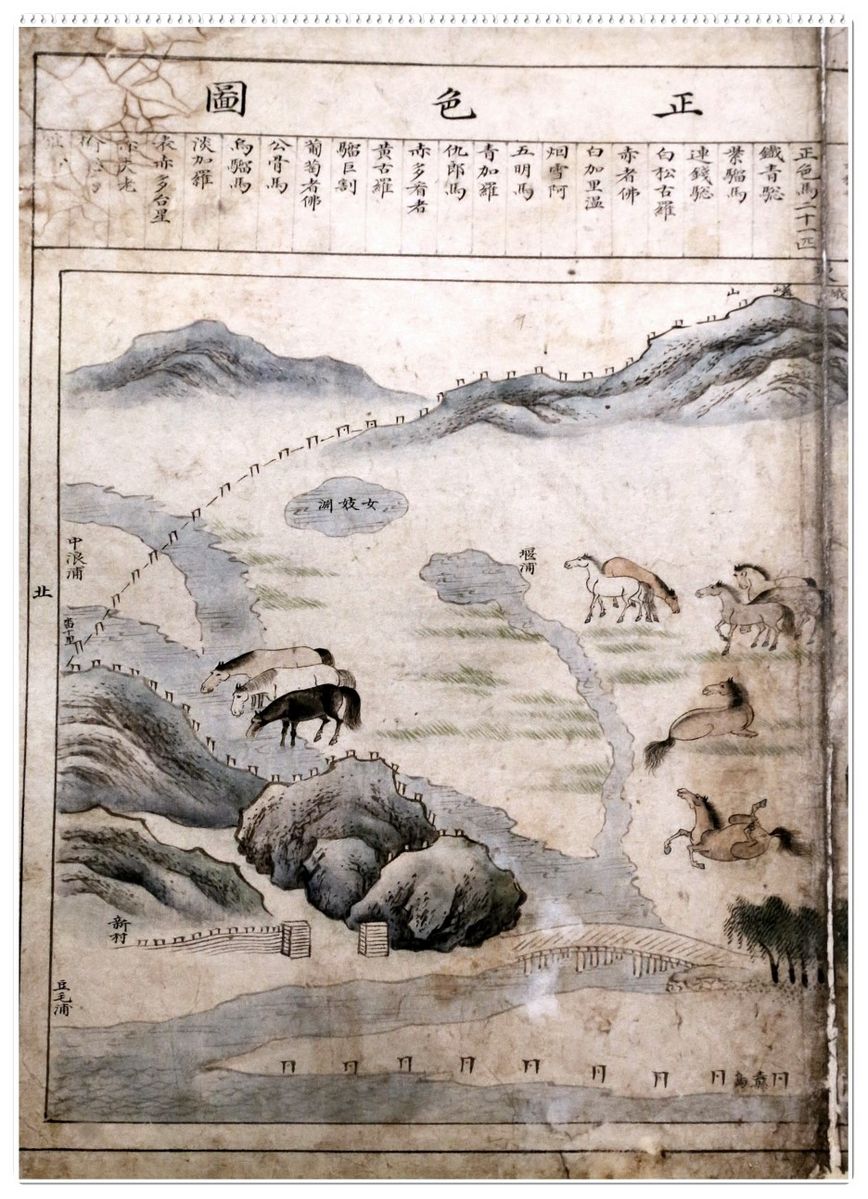 正色圖
正色馬二十一匹
鐵青驄
紫騮馬
連錢驄
白松古羅
赤者佛
白加里溫
烟雪阿
五明馬
青加羅
仇郎馬
赤多看者
黃古羅
騮巨割
葡萄者佛
公骨馬
烏騮馬
淡加羅
表赤多台星
峨嵯山
女妓淵
堰浦
中浪浦
北
新村
豆毛浦